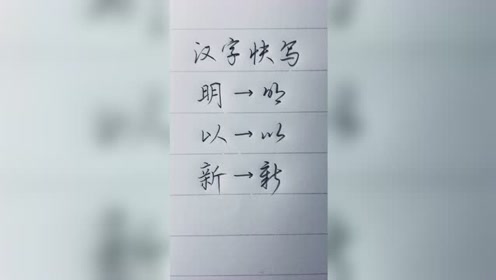 汉字快写
明→明
以→以
新→新